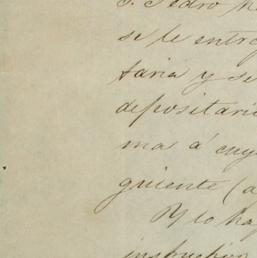 Pedro
se le entre
taria y se
depositari
ma á cuy
guiente (a
Y lo ha
instructiv